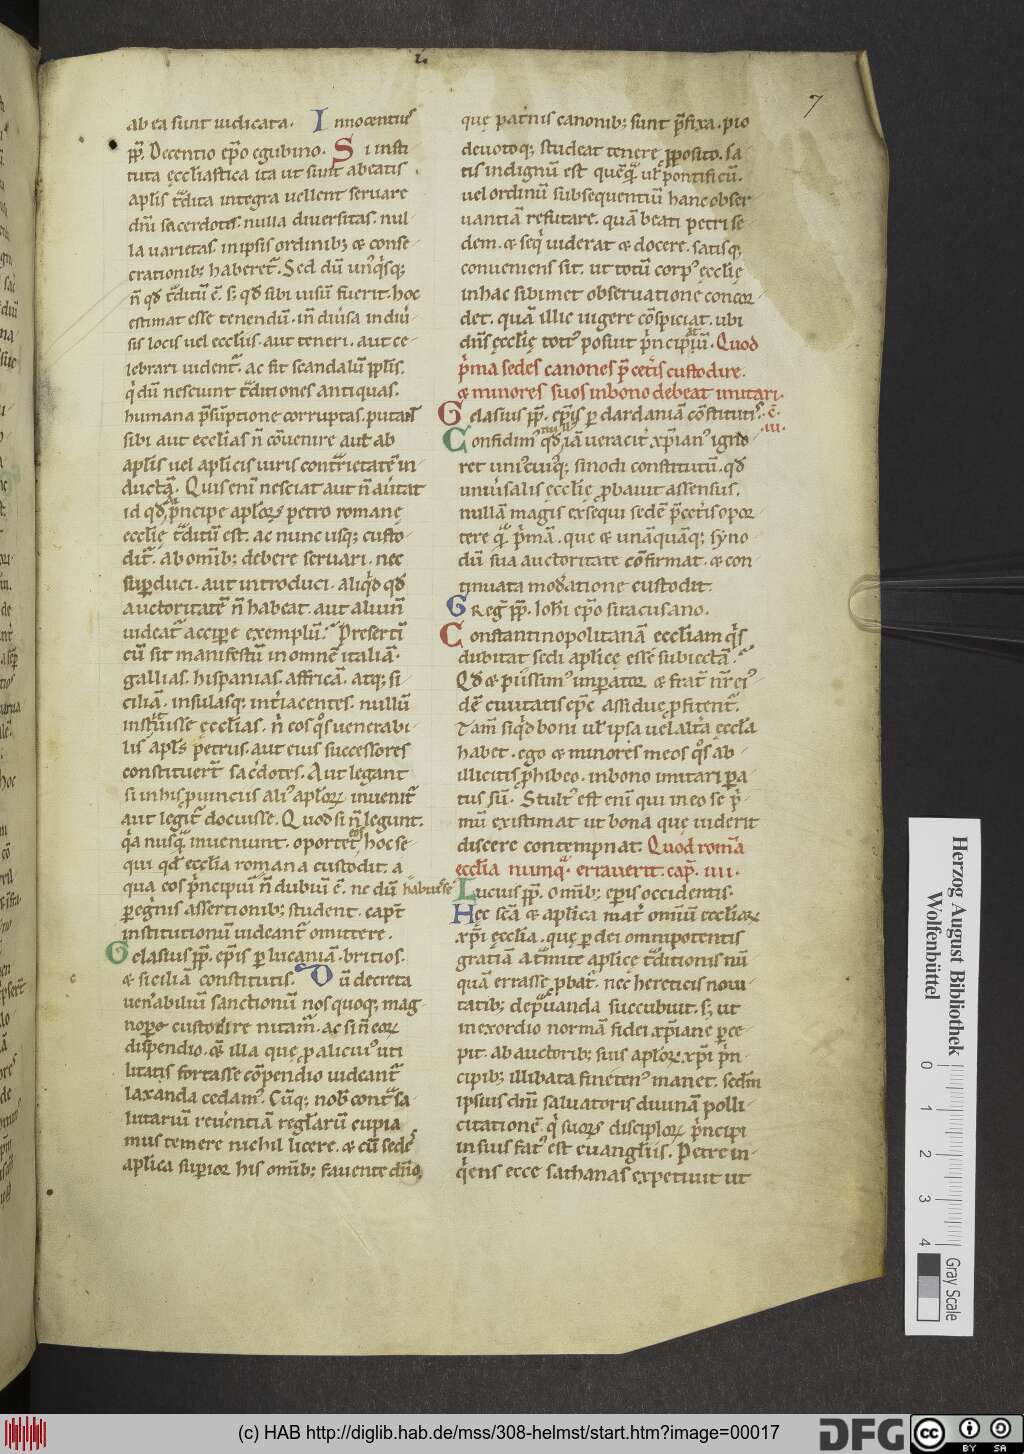 7
ab ea sunt iudicata. Innocentius
pp̄. Decentio ep̄o egubino. Si insti
tuta ęcclīastica ita ut sunt abeatis
aplīs t̄dita integra uellent seruare
dn̄i sacerdotes. nulla diuersitas. nul
la uarietas. in ipsis ordinib; & conse
crationib; haberet̄. Sed dū un᷒q͛sq;
n̄ qd̄ t̄ditū ē. s; qd̄ sibi uisū fuerit. hoc
estimat esse tenendū. in diūsa in diū
sis locis uel ecclīis. aut teneri. aut ce
lebrari uident̄. ac fit scandalū pp̄lis.
q͛ dū nesciunt t̄ditiones antiquas.
humana p̄sūptione corruptas. putant
sibi aut ecclīas n̄ cōuenire aut ab
aplīs uel aplīcis uiris contrietatē in
ductā. Quis enī nesciat aut n̄ aūtat
id qd̄ p̄ncipe aplōꝝ petro romanę
ęcclīę t̄ditū est. ac nunc usq; custo
dit̄. ab omīb; debere seruari. nec
suꝑduci. aut introduci. aliq͛d qd̄
auctoritatē n̄ habeat. aut aliunū
uideat̄ acciꝑe exemplū. Presertī
cū sit manifestū in omnē italiā.
gallias. hispanias. affricā. atq; si
ciliā. insulasq; int̄iacentes. nullū
instituisse ęcclīas. n̄ eos q͛s uenerabi
lis aplꝰs petrus. aut eius successores
constituert̄ sac̄dotes. Aut legant
si in his ꝓuinciis ali᷒ aplōꝝ inuenit̄
aut legit̄ docuisse. Quod si n̄ legunt.
q͛a nusq̄ inueniunt. oportet eos hoc se
qui qd̄ ecclīa romana custodit. a
qua eos p̄ncipiū n̄ dubiū ē. ne dū habuisse
ꝑegn̄is assertionib; student. capt̄
institutionū uideant̄ omittere.
Gelasius pp̄. ep̄is ꝑ lucaniā. britios.
& siciliā constitutis. Dū decreta
uen̄abiliū sanctionū nos quoq; mag
nopere custodire nitam̄. ac si n̄ eoꝝ
dispendio. q̄ illa quę ꝓ alicui᷒ uti
litatis fortasse cōpendio uideant̄
laxanda cedam᷒. Cūq; nob̄ cont̄ sa
lutariū reūentiā reglārū cupia
mus temere nichil licere. & cū sedes
aplīca suꝑior his omīb; fauente dn̄o
quę pat̄nis canonib; sunt p̄fixa. pio
deuotoq; studeat tenere ꝓposito. sa
tis indignū est quēq̄ ul̄ pontificū.
uel ordinū subsequentiū hanc obser
uantiā refutare. quā beati petri se
dem. & seq͛ uiderat & docere. satisq;
conueniens sit. ut totū corp᷒ ęcclīę
in hac sibimet obseruatione concor
det. quā illic uigere cōspiciat. ubi
dn̄s ęcclīę toti᷒ posuit p̄ncipatū. Quod
p̄ma sedes canones p̄ cet̄is custodire.
& minores suos in bono debeat imitari.
Gelasius pp̄. ep̄is ꝑ dardaniā cōstitutis. c̄. .iii.
Confidim᷒ qd̄ iā ueracit͛ xp̄ian᷒ igno
ret uni᷒cuiq; sinodi constitutū. qd̄
uniūsalis ęcclīę ꝓbauit assensus.
nullā magis exsequi sedē p̄ cet̄is opor
tere q̄ p̄mā. que & unāquāq; syno
dū sua auctoritate cōfirmat. & con
tinuata mod̄atione custodit.
Greḡ pp̄. Ioh̄i ep̄o siracusano.
Constantinopolitanā ecclīam q͛s
dubitat sedi aplīcę esse subiectā.
Qd̄ & piissim᷒ imꝑator & frat̄ nr̄ ei᷒
dē ciuitatis ep̄c assidue ꝓfitent̄.
Tam̄ siq͛d boni ul̄ ipsa uel alt̄a ęcclīa
habet. ego & minores meos q͛s ab
illicitis ꝓhibeo. in bono imitari ꝑa
tus sū. Stult᷒ est enī qui in eo se p̄
mū existimat ut bona que uiderit
discere contempnat. Quod romāa
ęcclīa numq̄ errauerit. cap̄. iiii.
Lucius pp̄. omīb; ep̄is occidentis.
Hęc sc̄a & aplīca mat̄ omiū ecclīaꝝ
xp̄i ęcclīa. quę ꝑ dei omnipotentis
gratiā a t̄mite aplīcę t̄ditionis nū
quā errasse ꝓbat̄. nec hereticis noui
tatib; dep̄uanda succubuit. s; ut
in exordio normā fidei xp̄iane ꝑce
pit. ab auctorib; suis aplōꝝ xp̄i p̄n
cipib; illibata finēten᷒ manet. sedm̄
ipsius dn̄i saluatoris diuinā polli
citationē. q͛ suoꝝ discip̄loꝝ p̄ncipi
in suis fat᷒ est euangliīs. Petre in
q͛ens ecce sathanas expetiuit ut
Herzog August Bibliothek
Wolfenbüttel
0 1 2 3 4
Gray Scale
(c) HAB http://diglib.hab.de/mss/308-helmst/start.htm?image=00017
DFG
cc BY SA